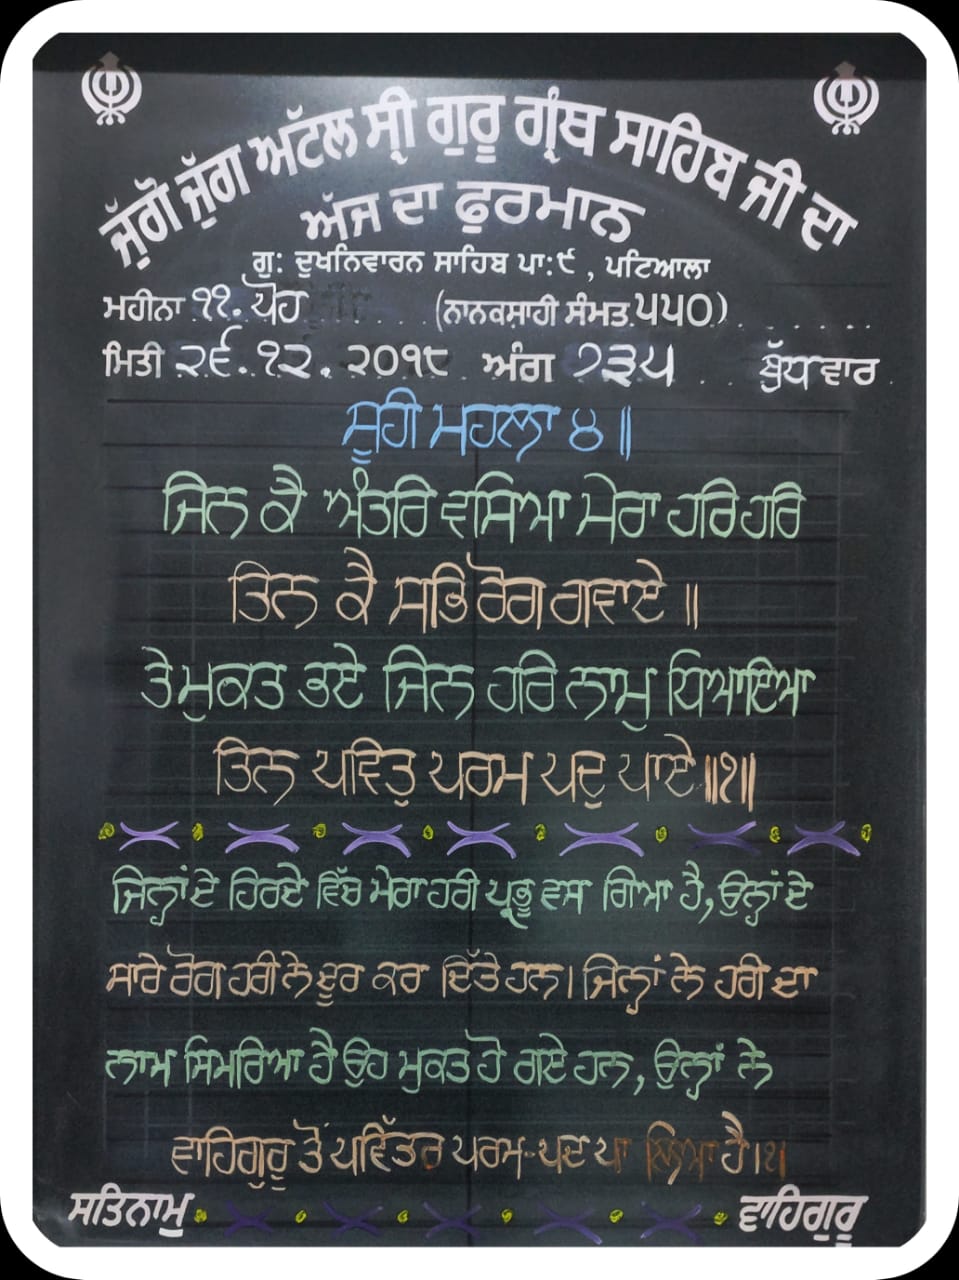 ਜੁੱਗੋ ਜੁੱਗ ਅਟੱਲ ਸ੍ਰੀ ਗੁਰੂ ਗ੍ਰੰਥ ਸਾਹਿਬ ਜੀ ਦਾ
ਅੱਜ ਦਾ ਫੁਰਮਾਨ
ਗੁ: ਦੁਖਨਿਵਾਰਨ ਸਾਹਿਬ ਪਾ:੯ , ਪਟਿਆਲਾ
ਮਹੀਨਾ ੧੧. ਪੋਹ (ਨਾਨਕਸ਼ਾਹੀ ਸੰਮਤ ੫੫੦)
ਮਿਤੀ ੨੬.੧੨.੨੦੧੮ ਅੰਗ ੭੩੫ ਬੁੱਧਵਾਰ
ਸੂਹੀ ਮਹਲਾ ੪ ॥
ਜਿਨ ਕੈ ਅੰਤਰਿ ਵਸਿਆ ਮੇਰਾ ਹਰਿ ਹਰਿ
ਤਿਨ ਕੈ ਸਭਿ ਰੋਗ ਗਵਾਏ ॥
ਤੇ ਮੁਕਤ ਭਏ ਜਿਨ ਹਰਿ ਨਾਮੁ ਧਿਆਇਆ
ਤਿਨ ਪਵਿਤੁ ਪਰਮ ਪਦੁ ਪਾਏ ॥੧॥
ਜਿਨ੍ਹਾਂ ਦੇ ਹਿਰਦੇ ਵਿੱਚ ਮੇਰਾ ਹਰੀ ਪ੍ਰਭੂ ਵਸ ਗਿਆ ਹੈ, ਉਨ੍ਹਾਂ ਦੇ
ਸਾਰੇ ਰੋਗ ਹਰੀ ਨੇ ਦੂਰ ਕਰ ਦਿੱਤੇ ਹਨ। ਜਿਨ੍ਹਾਂ ਨੇ ਹਰੀ ਦਾ
ਨਾਮ ਸਿਮਰਿਆ ਹੈ ਉਹ ਮੁਕਤ ਹੋ ਗਏ ਹਨ, ਉਨ੍ਹਾਂ ਨੇ
ਵਾਹਿਗੁਰੂ ਤੋਂ ਪਵਿੱਤਰ ਪਰਮ-ਪਦ ਪਾ ਲਿਆ ਹੈ।੧।
ਸਤਿਨਾਮੁ ਵਾਹਿਗੁਰੂ